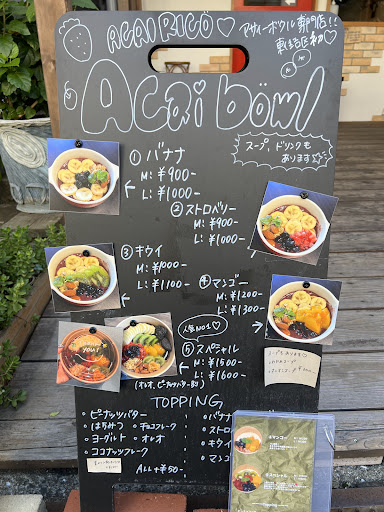 ACAI RICO♡ アサイーボウル専門店!!
東結区初♡
Acai bowl
スープ、ドリンクも
あります☆
① バナナ
M: ¥900-
L: ¥1000-
② ストロベリー
M: ¥900-
L: ¥1000-
③ キウイ
M: ¥1000-
L: ¥1100-
④ マンゴー
M: ¥1200-
L: ¥1300-
人気NO1♡
⑤ スペシャル
M: ¥1500-
L: ¥1600-
(オレオ、ピーナッツバター即)
TOPPING
・ピーナッツバター
・はちみつ ・チョコフレーク
・ヨーグルト ・オレオ
・ココナッツフレーク
ALL+¥50-
・バナナ
・ストロ
・キウイ
・マンゴ
④マンゴー
⑤スペシャル